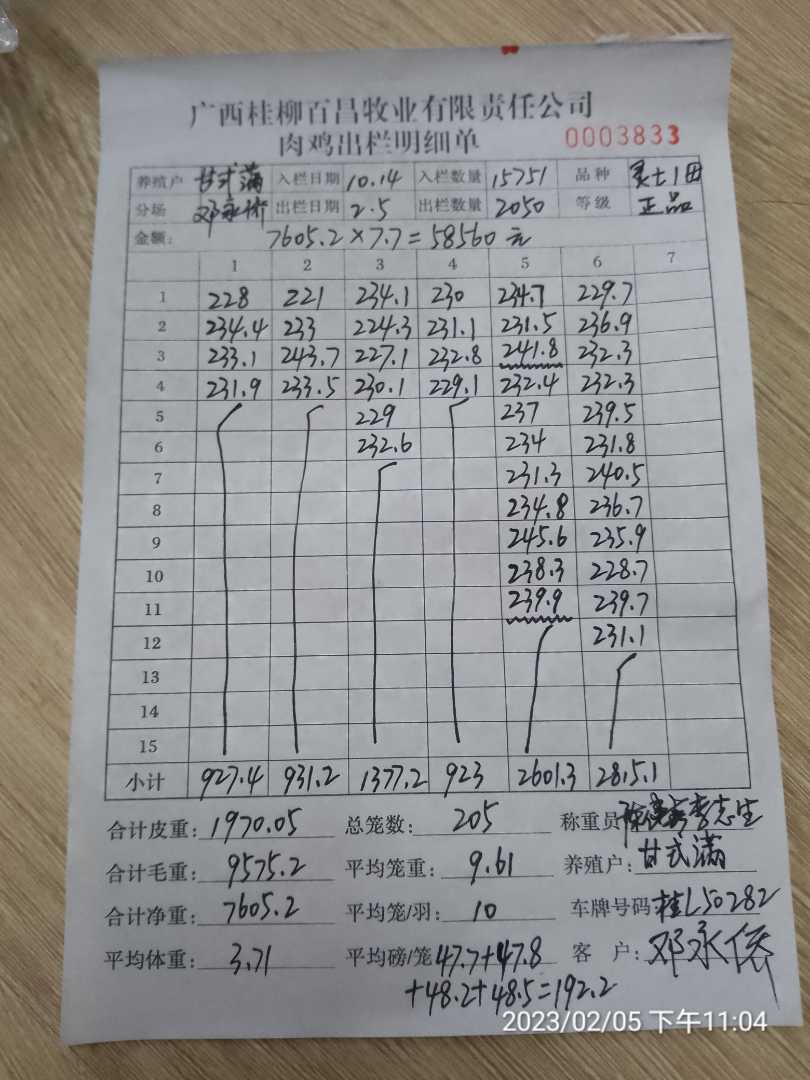 广西桂柳百昌牧业有限责任公司
肉鸡出栏明细单 0003833
养殖户 甘式满 入栏日期 10.14 入栏数量 15751 品种
分场 邓永 出栏日期 2.5 出栏数量 2050 等级 正品
金额: 7605.2×7.7=58560元
1 2 3 4 5 6 7
1 228 221 234.1 230 234.7 229.7
2 234.4 233 224.3 231.1 231.5 236.9
3 233.1 243.7 227.1 232.8 241.8 232.3
4 231.9 233.5 230.1 229.1 232.4 232.3
5 229 237 239.5
6 232.6 234 231.8
7 231.3 240.5
8 234.8 236.7
9 245.6 235.9
10 238.3 228.7
11 239.9 239.7
12 231.1
13
14
15
小计 927.4 931.2 1377.2 923 2601.3 2815.1
合计皮重: 1970.05 总笼数: 205 称重员 李志生
合计毛重: 9575.2 平均笼重: 9.61 养殖户: 甘式满
合计净重: 7605.2 平均笼/羽: 10 车牌号码 桂L50282
平均体重: 3.71 平均磅/笼 47.7+47.8 客 户: 邓永
+48.2+48.5=192.2
2023/02/05 下午11:04